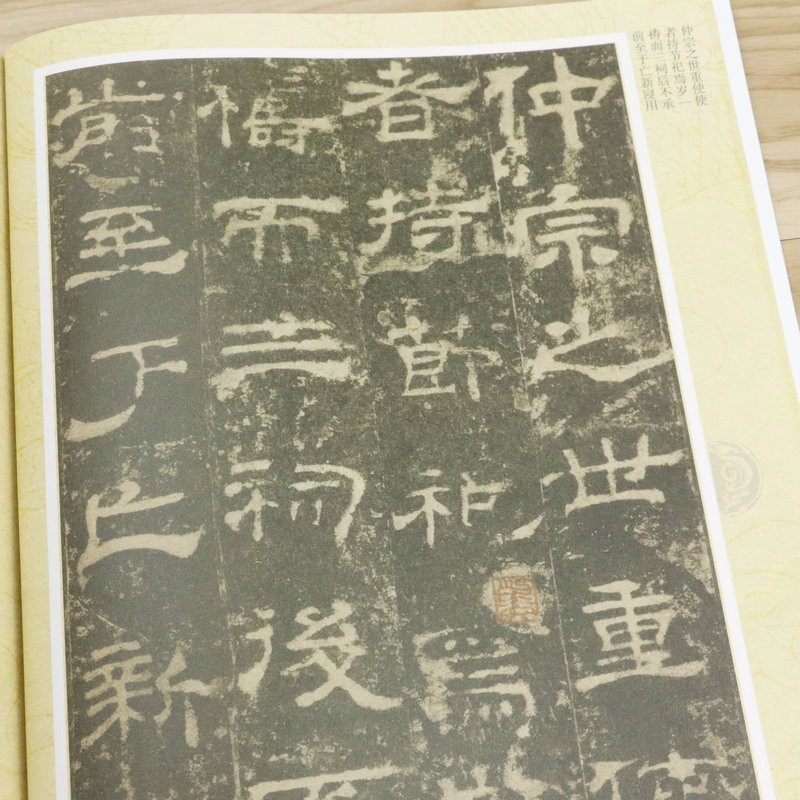 仲宗之世重使使
者持节祀焉岁一
祷而三祠后不承
前至于亡新寖用
仲宗之世重使
者持節祀焉歲
禱而三祠後不
前至于亡新